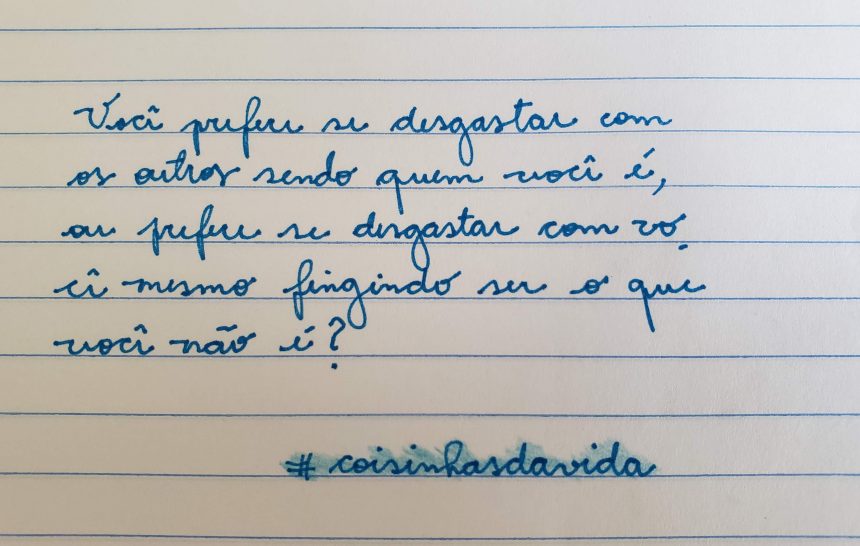 Você prefere se desgastar com
os outros sendo quem você é,
ou prefere se desgastar com vo
cê mesmo fingindo ser o que
você não é?
#coisinhasdavida